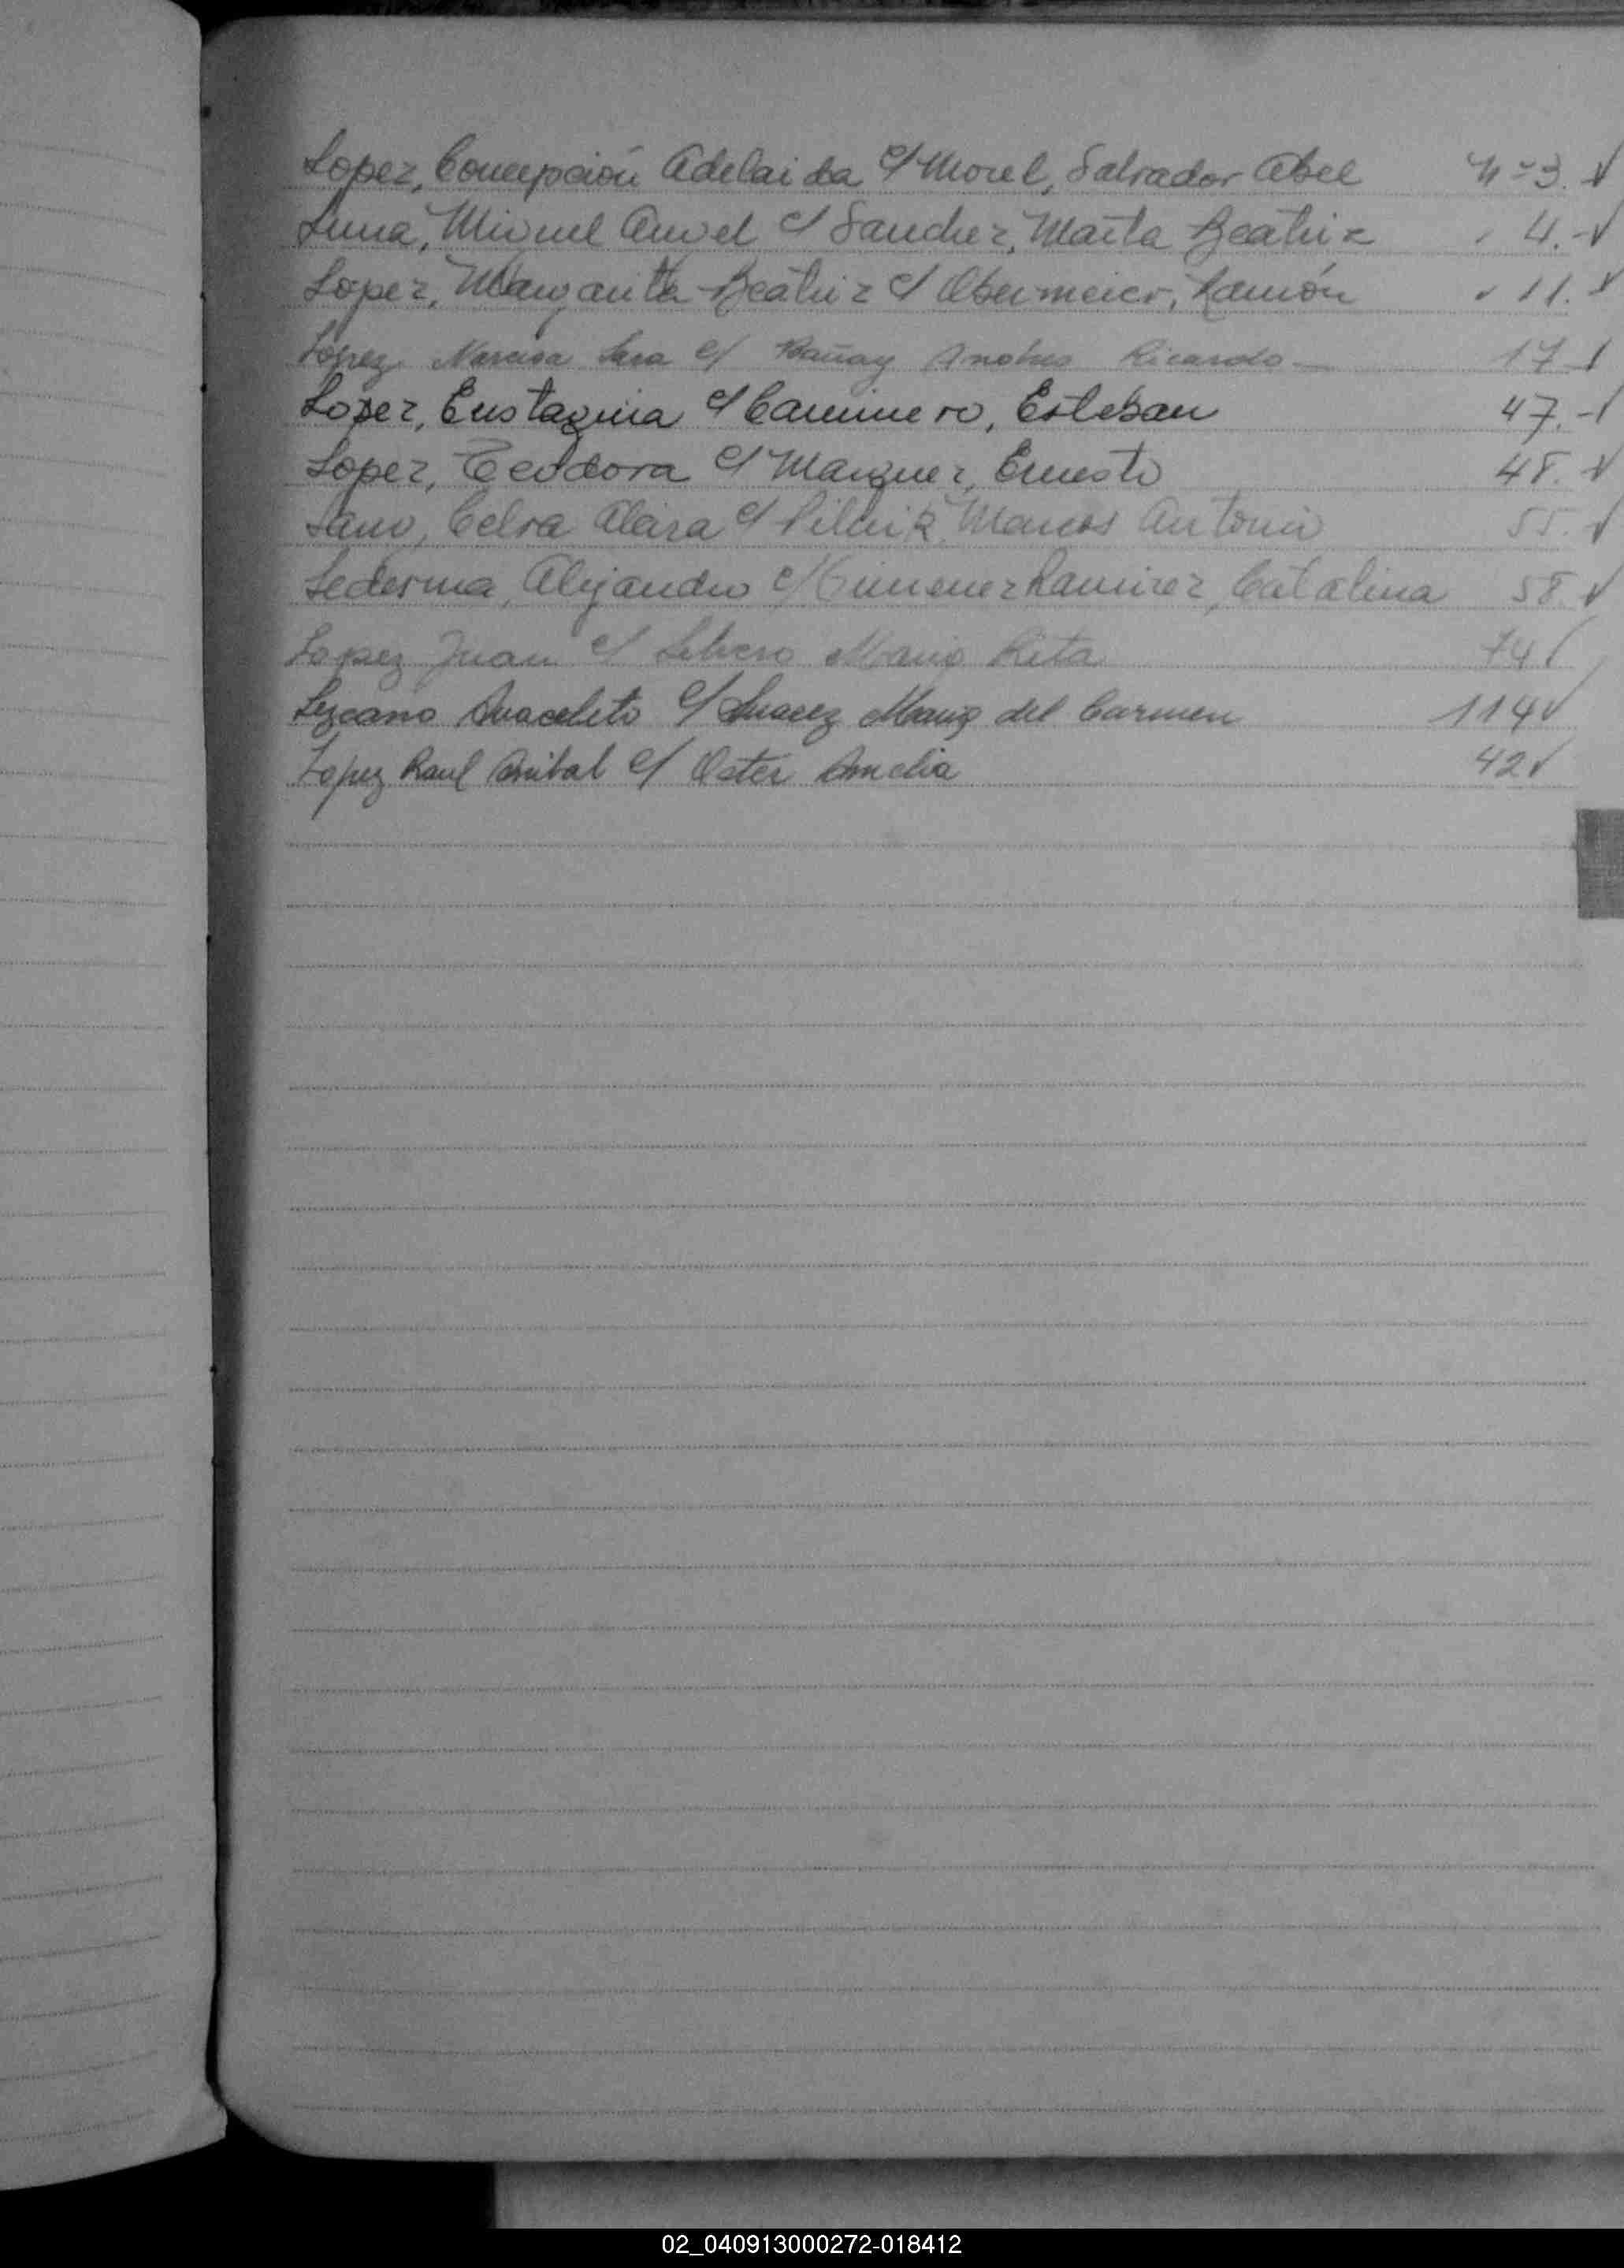 Lopez, Concepción Adelaida c/ Morel, Salvador Abel Nº 3.
Luna, Miguel Angel c/ Sanchez, Marta Beatriz " 4.-
Lopez, Margarita Beatriz c/ Obermeier, Ramón " 11.
López Narcisa Sara c/ Andres Ricardo 17
Lopez, Eustaquia c/ Caminero, Esteban 47.-
Lopez, Teodora c/ Marquez, Ernesto 48.
Celsa c/ Marcos Antonio 55.
Ledesma, Alejandro c/ Gimenez Ramirez, Catalina 58.
Lopez Juan c/ Maria Rita 74
Lezcano Anacleto c/ Suarez Maria del Carmen 114
Lopez Raul Anibal c/ Oster Amelia 42
02_040913000272-018412